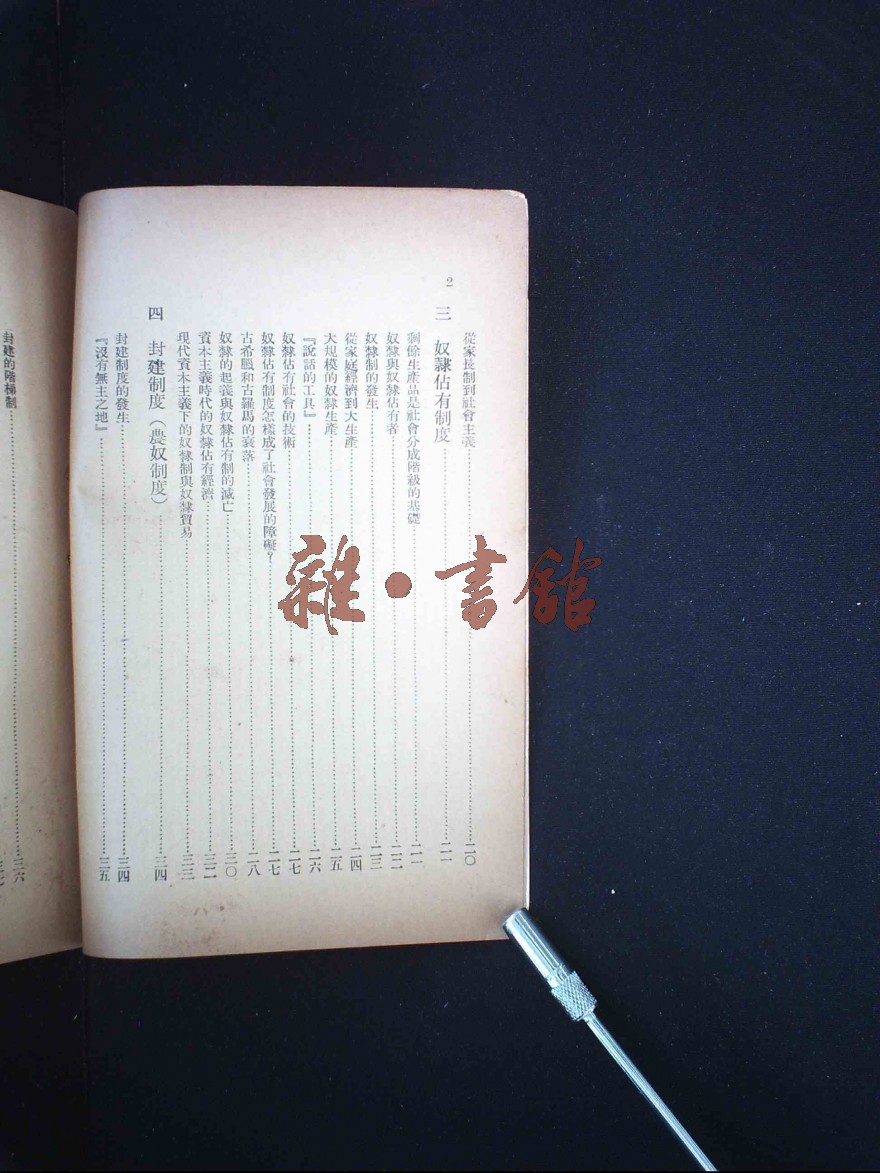 2
從家長制到社會主義……二〇
三 奴隸佔有制度……二一
剩餘生產品是社會分成階級的基礎……二一
奴隸與奴隸佔有者……二二
奴隸制的發生……二三
從家庭經濟到大生產……二四
大規模的奴隸生產……二五
『說話的工具』……二六
奴隸佔有社會的技術……二七
奴隸佔有制度怎樣成了社會發展的障礙？……二七
古希臘和古羅馬的衰落……二八
奴隸的起義與奴隸佔有制的滅亡……三〇
資本主義時代的奴隸佔有經濟……三二
現代資本主義下的奴隸制與奴隸貿易……三三
四 封建制度（農奴制度）……三四
封建制度的發生……三四
『沒有無主之地』……三五
封建的階梯制……三六
雜·書館